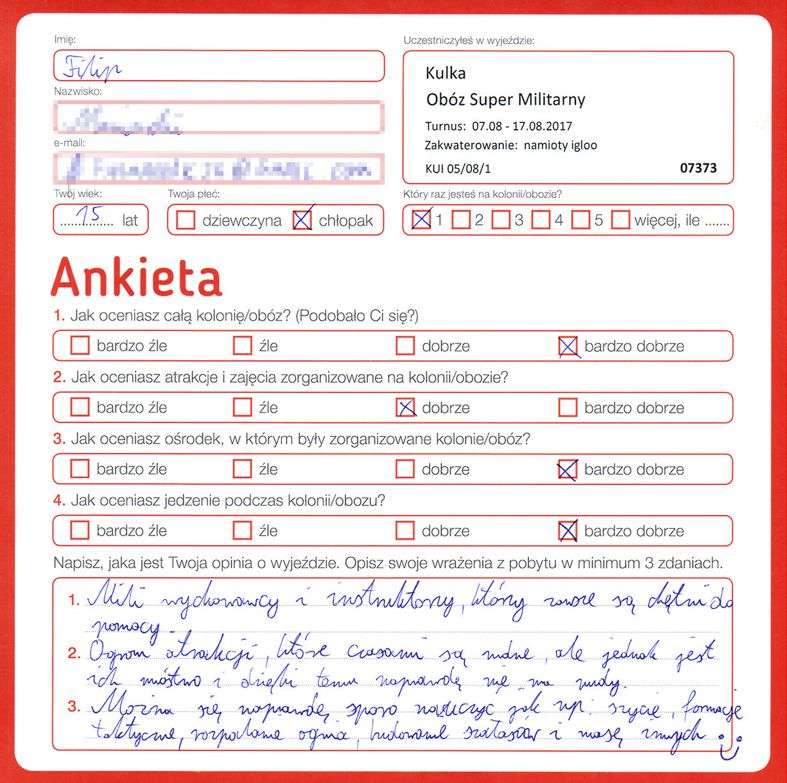 Imię:
Filip
Uczestniczyłeś w wyjeździe:
Kulka
Obóz Super Militarny
Turnus: 07.08 - 17.08.2017
Zakwaterowanie: namioty igloo
KUI 05/08/1 07373
Nazwisko:
e-mail:
Twój wiek:
15 lat
Twoja płeć:
dziewczyna chłopak
Który raz jesteś na kolonii/obozie?
1 2 3 4 5 więcej, ile .......
Ankieta
1. Jak oceniasz całą kolonię/obóz? (Podobało Ci się?)
bardzo źle źle dobrze bardzo dobrze
2. Jak oceniasz atrakcje i zajęcia zorganizowane na kolonii/obozie?
bardzo źle źle dobrze bardzo dobrze
3. Jak oceniasz ośrodek, w którym były zorganizowane kolonie/obóz?
bardzo źle źle dobrze bardzo dobrze
4. Jak oceniasz jedzenie podczas kolonii/obozu?
bardzo źle źle dobrze bardzo dobrze
Napisz, jaka jest Twoja opinia o wyjeździe. Opisz swoje wrażenia z pobytu w minimum 3 zdaniach.
1. Mili wychowawcy i instruktorzy, którzy zawsze są chętni do
pomocy.
2. Ogrom atrakcji, które czasami są nudne, ale jednak jest
ich mnóstwo i dzięki temu naprawdę nie ma nudy.
3. Można się naprawdę sporo nauczyć jak np. szycie, formacje
taktyczne, rozpalanie ognia, budowanie szałasów i masę innych :)